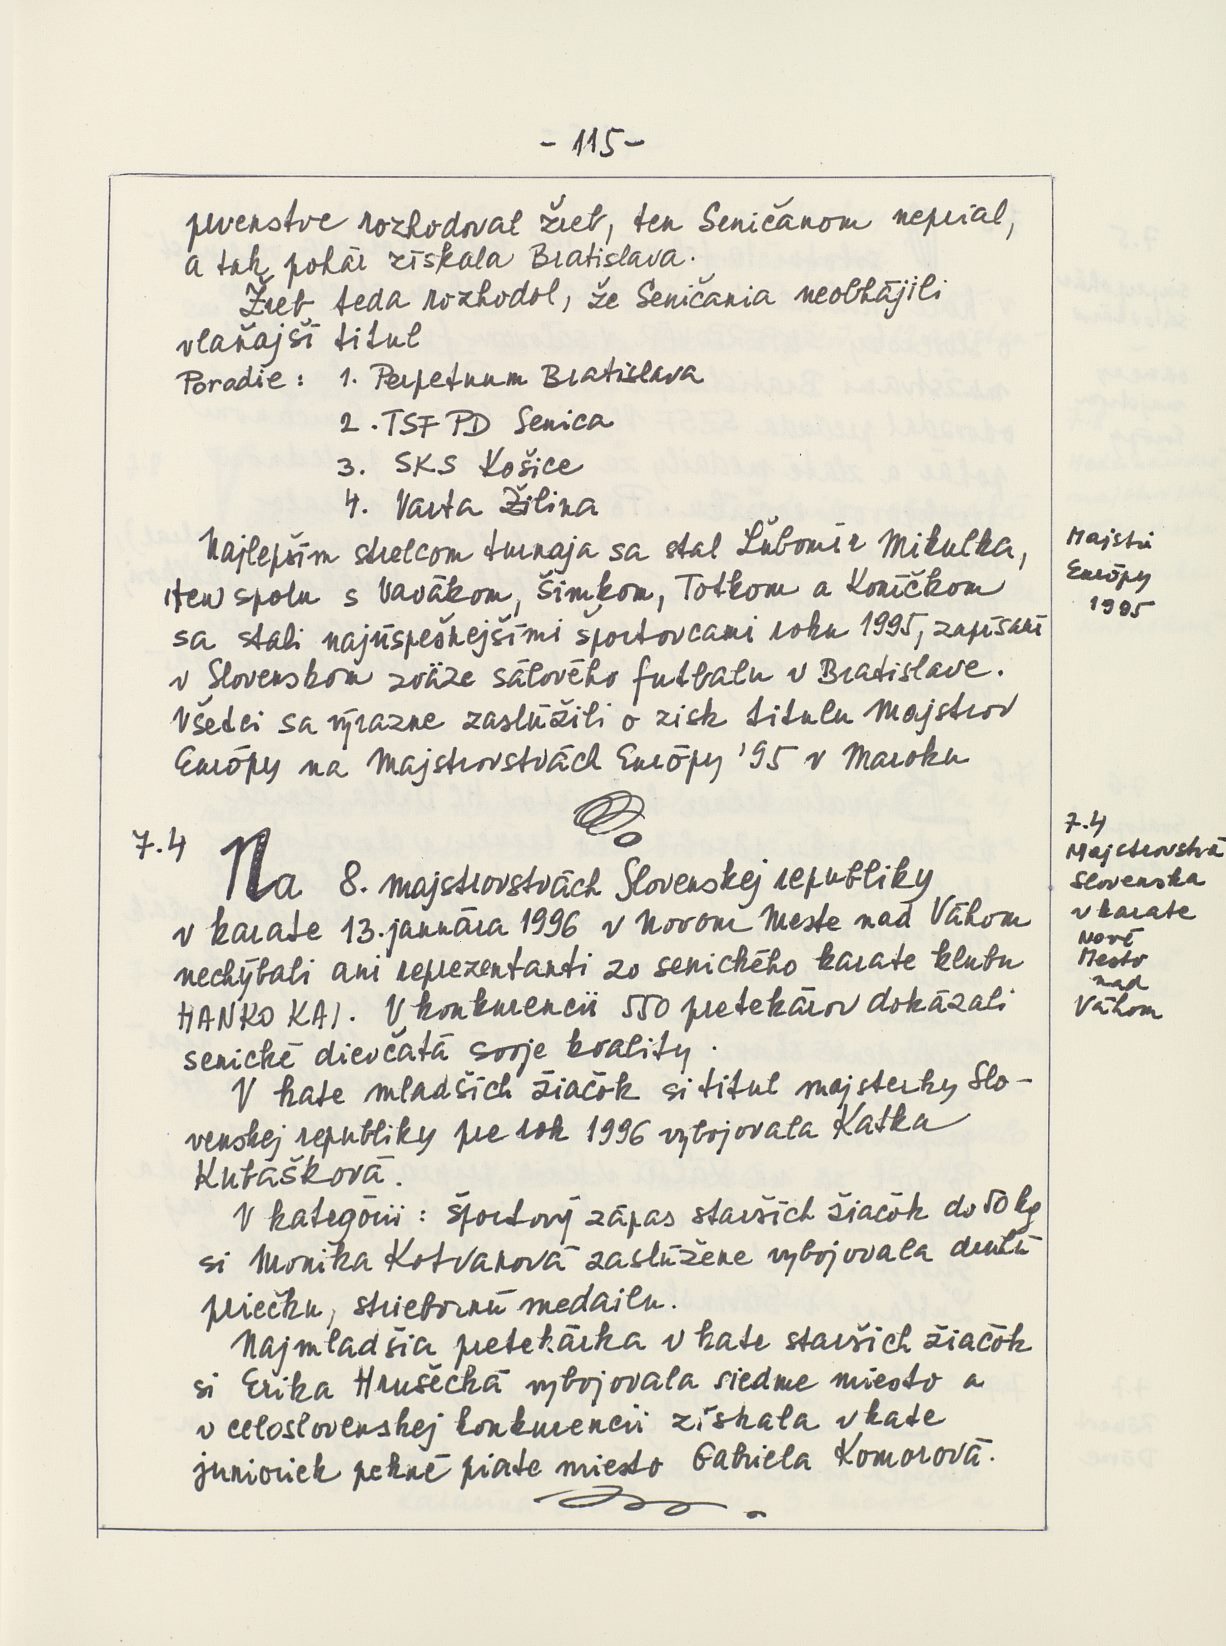 - 115 -
prvenstve rozhodoval žreb, ten Seničanom neprial,
a tak pohár získala Bratislava.
Žreb teda rozhodol, že Seničania neobhájili
vlaňajší titul
Poradie : 1. Perpetuum Bratislava
2. TSF PD Senica
3. SKS Košice
4. Varta Žilina
Najlepším strelcom turnaja sa stal Ľubomír Mikulka,
ten spolu s Vavákom, Šimkom, Totkom a Koníčkom
sa stali najúspešnejšími športovcami roku 1995, zapísaní
v Slovenskom zväze sálového futbalu v Bratislave.
Všetci sa výrazne zaslúžili o zisk titulu Majstrov
Európy na Majstrovstvách Európy '95 v Maroku
Majstri
Európy
1995
7.4 Na 8. majstrovstvách Slovenskej republiky
v karate 13. januára 1996 v Novom Meste nad Váhom
nechýbali ani reprezentanti zo senického karate klubu
HANKO KAI. V konkurencii 550 pretekárov dokázali
senické dievčatá svoje kvality.
V kate mladších žiačok si titul majsterky Slo-
venskej republiky pre rok 1996 vybojovala Katka
Kubášková.
V kategórii : športový zápas starších žiačok do 50 kg
si Monika Kotvanová zaslúžene vybojovala druhú
priečku, striebornú medailu.
Najmladšia pretekárka v kate starších žiačok
si Erika Hrušecká vybojovala siedme miesto a
v celoslovenskej konkurencii získala v kate
junioriek pekné piate miesto Gabriela Komorová.
7.4
Majstrovstvá
Slovenska
v karate
Nové
Mesto
nad
Váhom